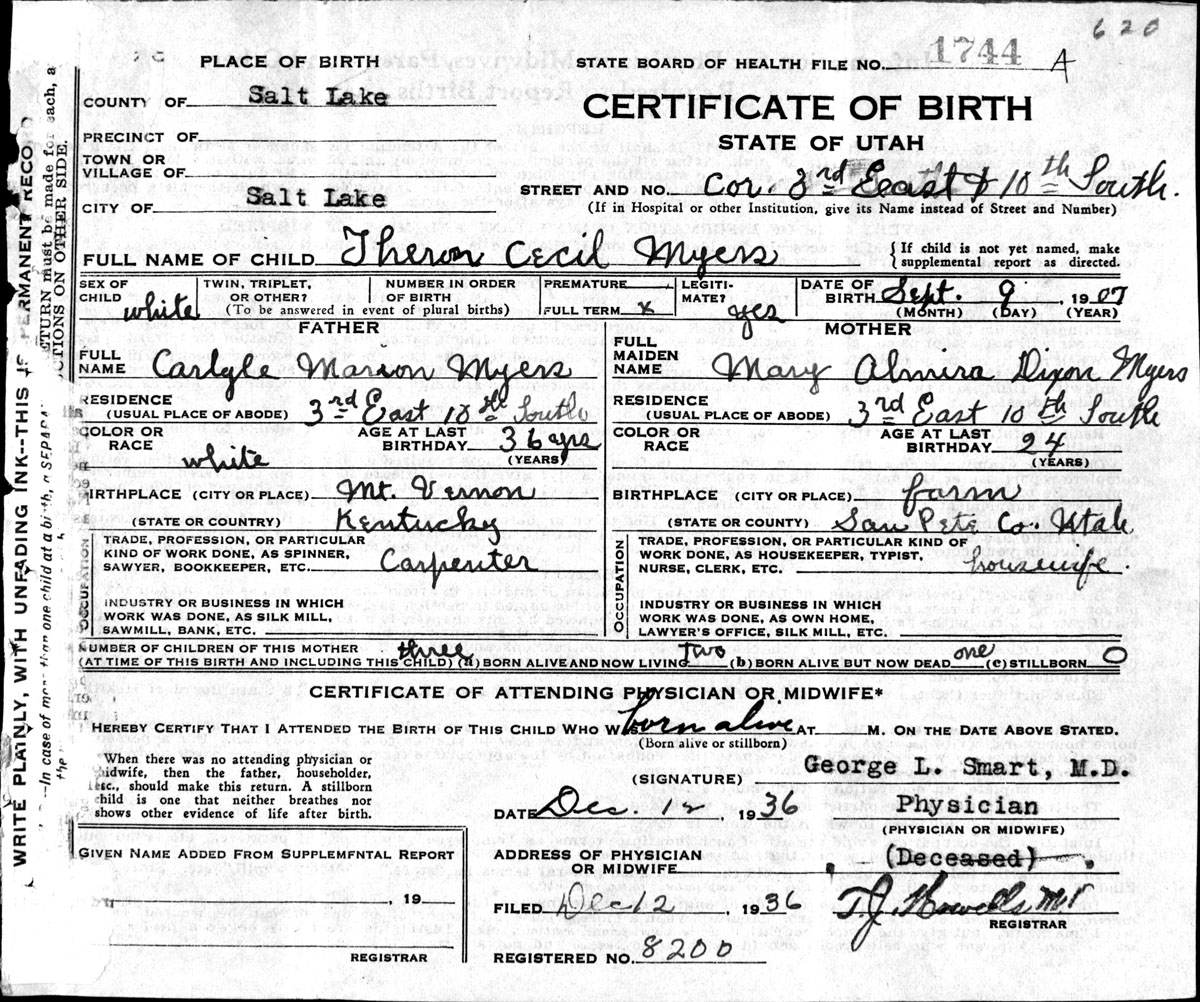 620
PLACE OF BIRTH
STATE BOARD OF HEALTH FILE NO. 1744 A
COUNTY OF Salt Lake
CERTIFICATE OF BIRTH
PRECINCT OF
STATE OF UTAH
TOWN OR
VILLAGE OF
STREET AND NO. Cor. 3rd East & 10th South.
CITY OF Salt Lake
(If in Hospital or other Institution, give its Name instead of Street and Number)
FULL NAME OF CHILD Theron Cecil Myers
{If child is not yet named, make
supplemental report as directed.
SEX OF
CHILD white
TWIN, TRIPLET,
OR OTHER?
NUMBER IN ORDER
OF BIRTH
(To be answered in event of plural births)
PREMATURE
FULL TERM x
LEGITI-
MATE? yes
DATE OF
BIRTH Sept. 9, 1907
(MONTH) (DAY) (YEAR)
FATHER
FULL
NAME Carlyle Marion Myers
RESIDENCE
(USUAL PLACE OF ABODE) 3rd East 10th South
COLOR OR
RACE white
AGE AT LAST
BIRTHDAY 36 yrs
(YEARS)
BIRTHPLACE (CITY OR PLACE) Mt. Vernon
(STATE OR COUNTRY) Kentucky
TRADE, PROFESSION, OR PARTICULAR
KIND OF WORK DONE, AS SPINNER,
SAWYER, BOOKKEEPER, ETC. Carpenter
INDUSTRY OR BUSINESS IN WHICH
WORK WAS DONE, AS SILK MILL,
SAWMILL, BANK, ETC.
MOTHER
FULL
MAIDEN
NAME Mary Almira Dixon Myers
RESIDENCE
(USUAL PLACE OF ABODE) 3rd East 10th South
COLOR OR
RACE
AGE AT LAST
BIRTHDAY 24
(YEARS)
BIRTHPLACE (CITY OR PLACE) farm
(STATE OR COUNTY) San Pete Co. Utah
OCCUPATION
TRADE, PROFESSION, OR PARTICULAR KIND OF
WORK DONE, AS HOUSEKEEPER, TYPIST,
NURSE, CLERK, ETC. housewife.
INDUSTRY OR BUSINESS IN WHICH
WORK WAS DONE, AS OWN HOME,
LAWYER'S OFFICE, SILK MILL, ETC.
NUMBER OF CHILDREN OF THIS MOTHER
(AT TIME OF THIS BIRTH AND INCLUDING THIS CHILD) three (a) BORN ALIVE AND NOW LIVING two (b) BORN ALIVE BUT NOW DEAD one (c) STILLBORN O
CERTIFICATE OF ATTENDING PHYSICIAN OR MIDWIFE*
HEREBY CERTIFY THAT I ATTENDED THE BIRTH OF THIS CHILD WHO WAS born alive AT M. ON THE DATE ABOVE STATED.
(Born alive or stillborn)
When there was no attending physician or
midwife, then the father, householder,
etc., should make this return. A stillborn
child is one that neither breathes nor
shows other evidence of life after birth.
(SIGNATURE) George L. Smart, M.D.
DATE Dec. 12, 1936
Physician
(PHYSICIAN OR MIDWIFE)
GIVEN NAME ADDED FROM SUPPLEMENTAL REPORT
, 19
REGISTRAR
ADDRESS OF PHYSICIAN
OR MIDWIFE (Deceased)
FILED Dec 12, 1936
T.J. Howells
REGISTRAR
REGISTERED NO. 8200
WRITE PLAINLY, WITH UNFADING INK--THIS IS PERMANENT RECO
--In case of more than one child at a birth, a SEPARA
ETURN must be made for each, a
CTIONS ON OTHER SIDE.